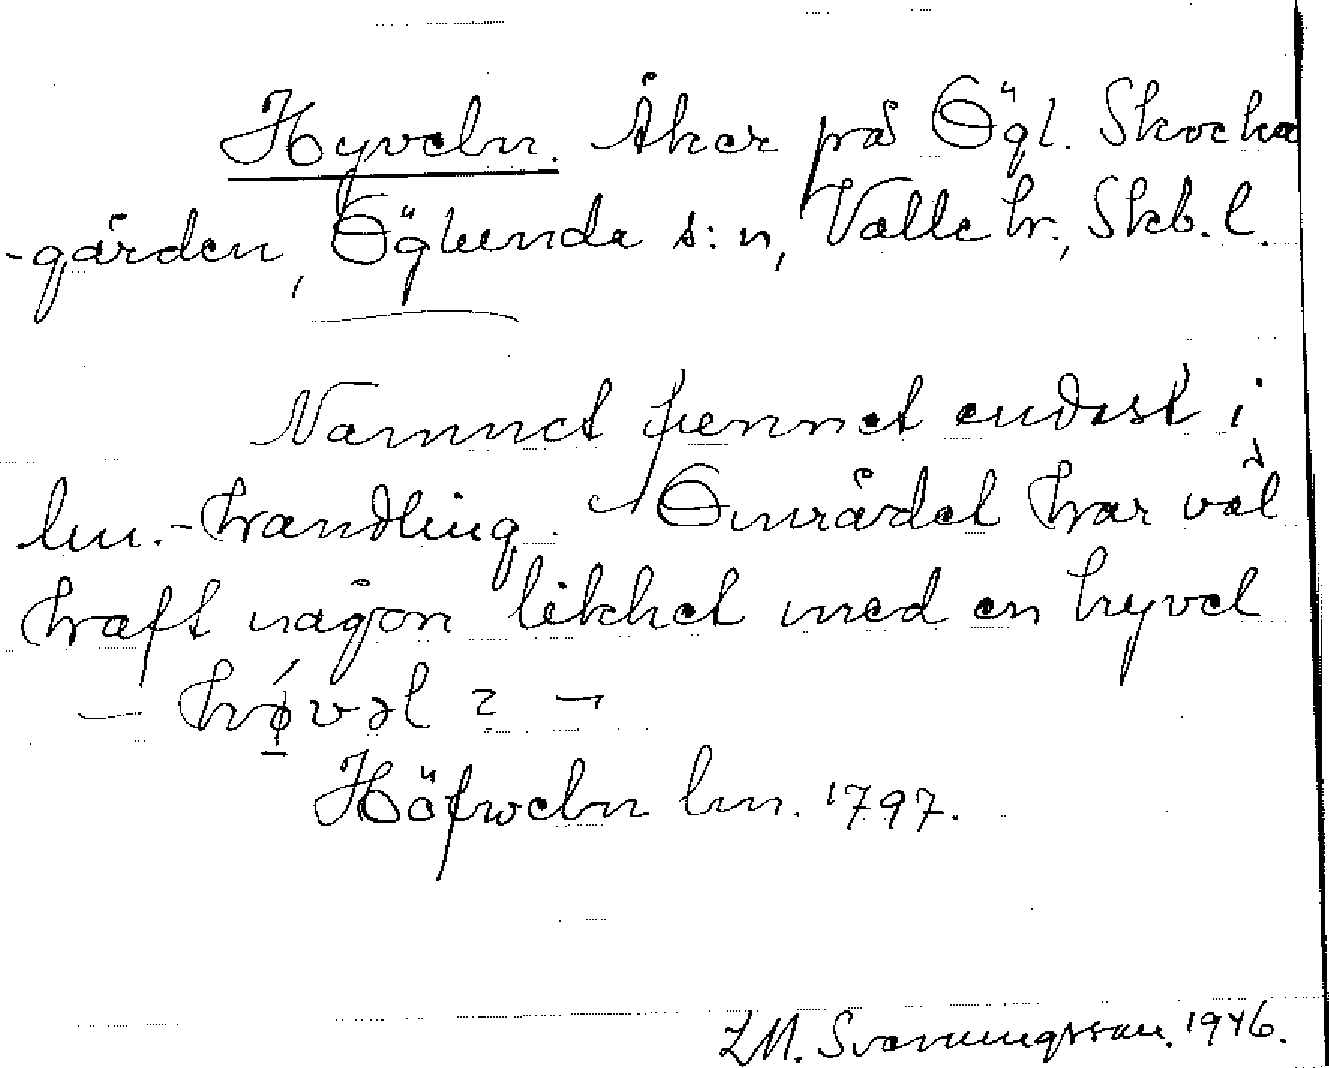 Hyveln. Åker på Ögl. Skocka
-gården, Öglunda s:n, Valle hr., Skb. l.
Namnet funnet endast i
lm.-handling. Området har väl
haft någon likhet med en hyvel
– hø̱vəl ? –
Höfweln lm. 1797.
L M. Svenungsson. 1946.